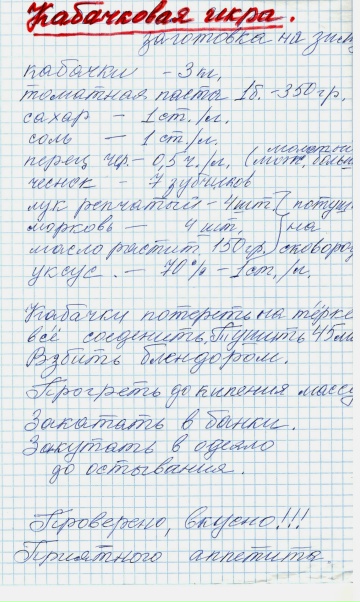 Кабачковая икра.
заготовка на зиму
кабачки - 3 кг,
томатная паста 1б. - 350 гр,
сахар - 1 ст./л.
соль - 1 ст./л.
молотый
перец чер. - 0,5 ч./л, (мож. больш
чеснок - 7 зубчиков
лук репчатый - 4 шт. потуш
морковь - 4 шт, на
масло растит 150 гр, сковород
уксус. - 70% - 1 ст./л,
Кабачки потереть на тёрке
всё соеденить. Тушить 45 м
Взбить блендором.
Прогреть до кипения массу
Закатать в банки.
Закутать в одеяло
до остывания.
Проверено, вкусно!!!
Приятного аппетита